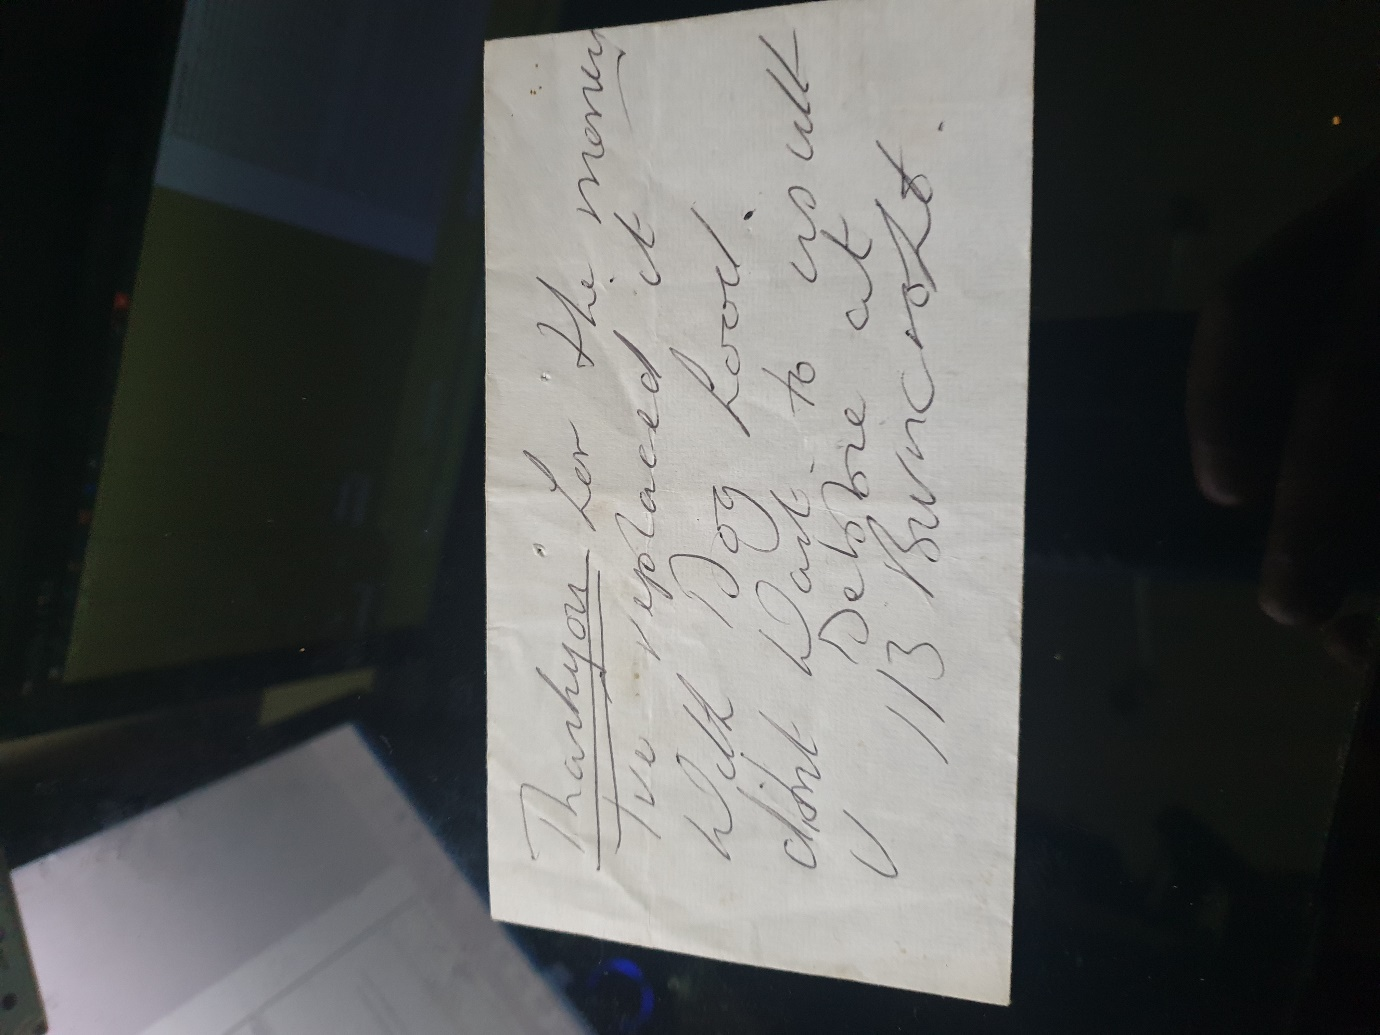 Thankyou for the money
I've replaced it
with Dog food.
didnt want to insult
U Debbie at
113 Brincroft.